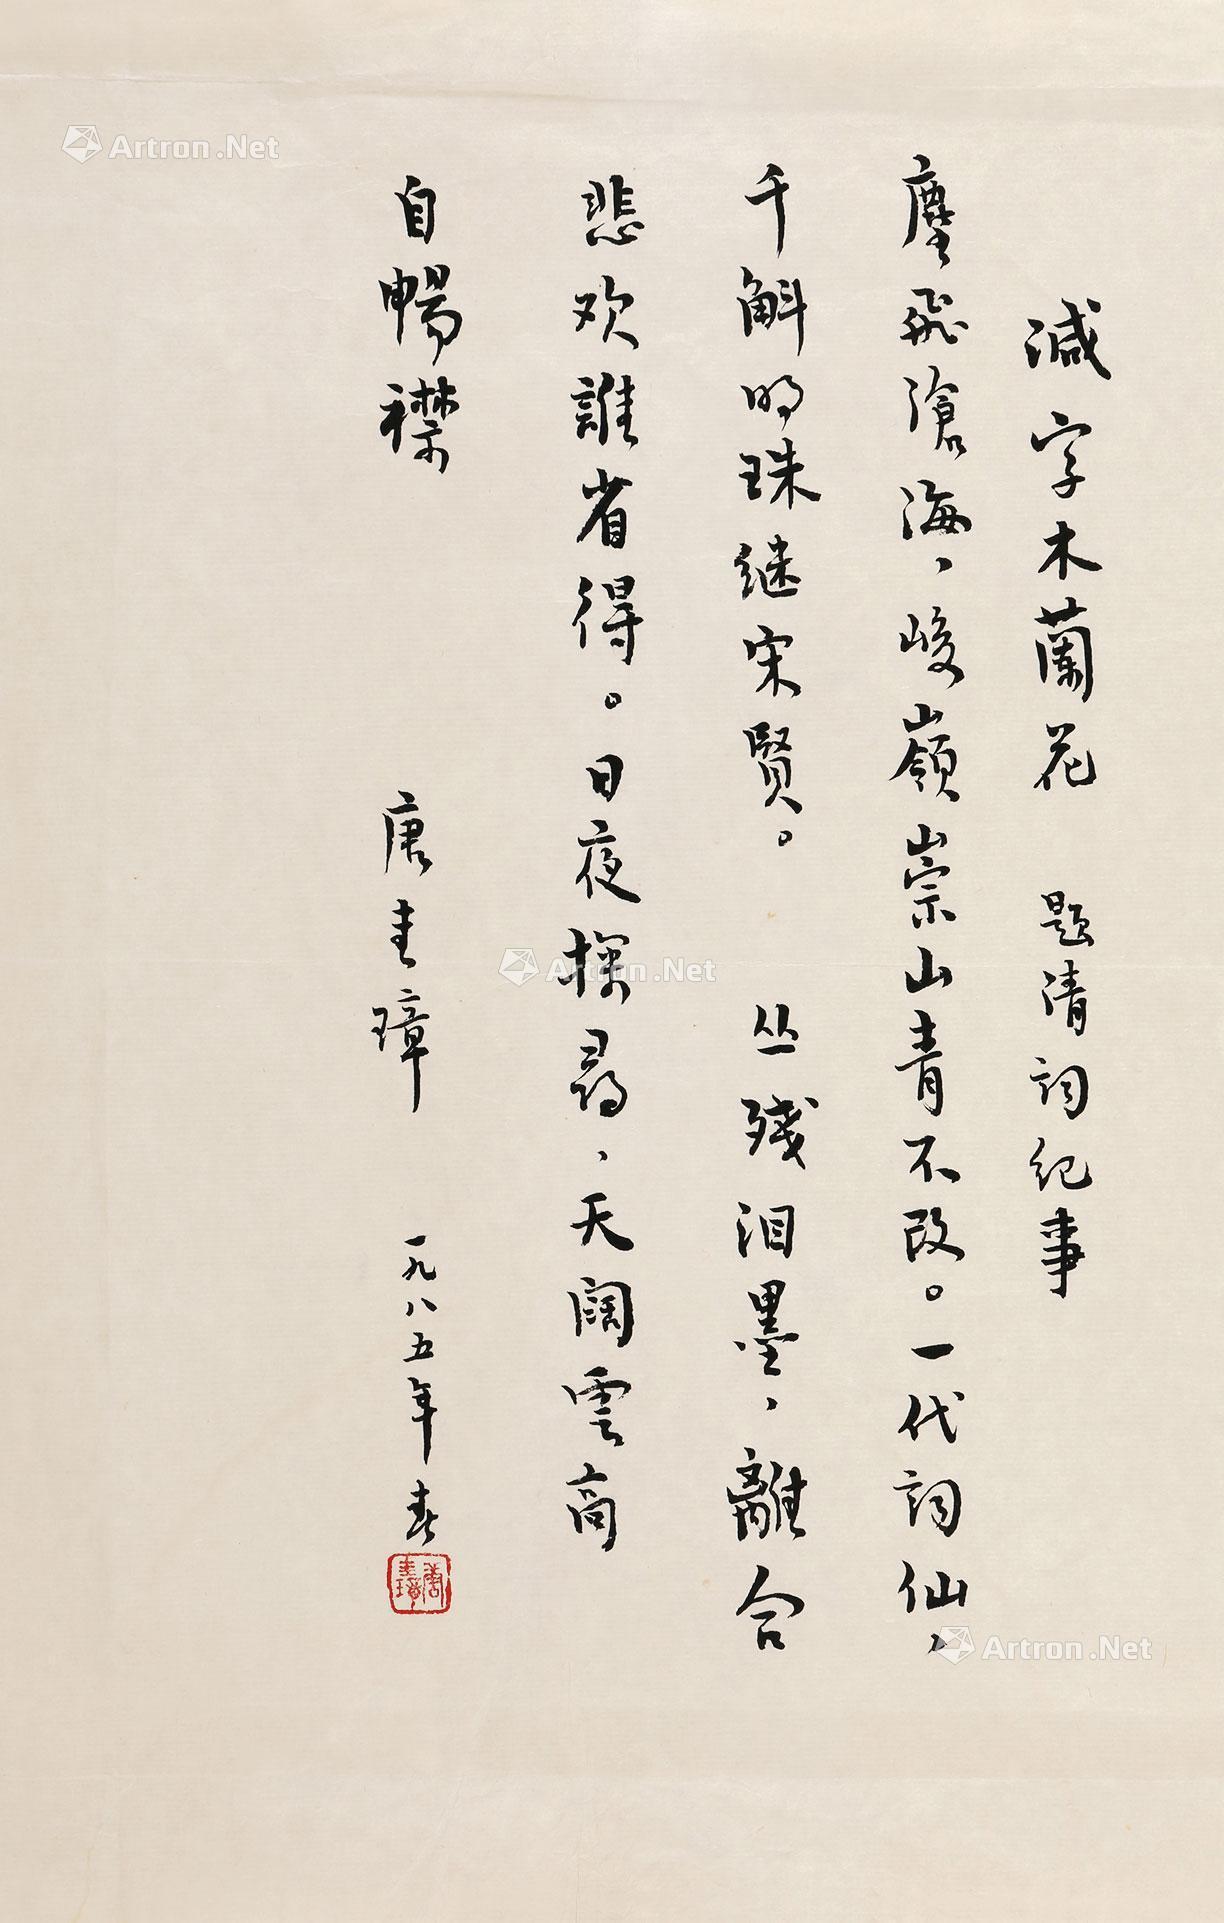 減字木蘭花 题清詞紀事
塵飛滄海，峻嶺崇山青不改。一代詞仙，
千斛明珠继宋賢。 丛残泪墨，離合
悲欢誰省得。日夜探尋，天闊雲高
自暢襟
唐圭璋 一九八五年春
唐圭璋
Artron.Net
Artron.Net
Artron.Net